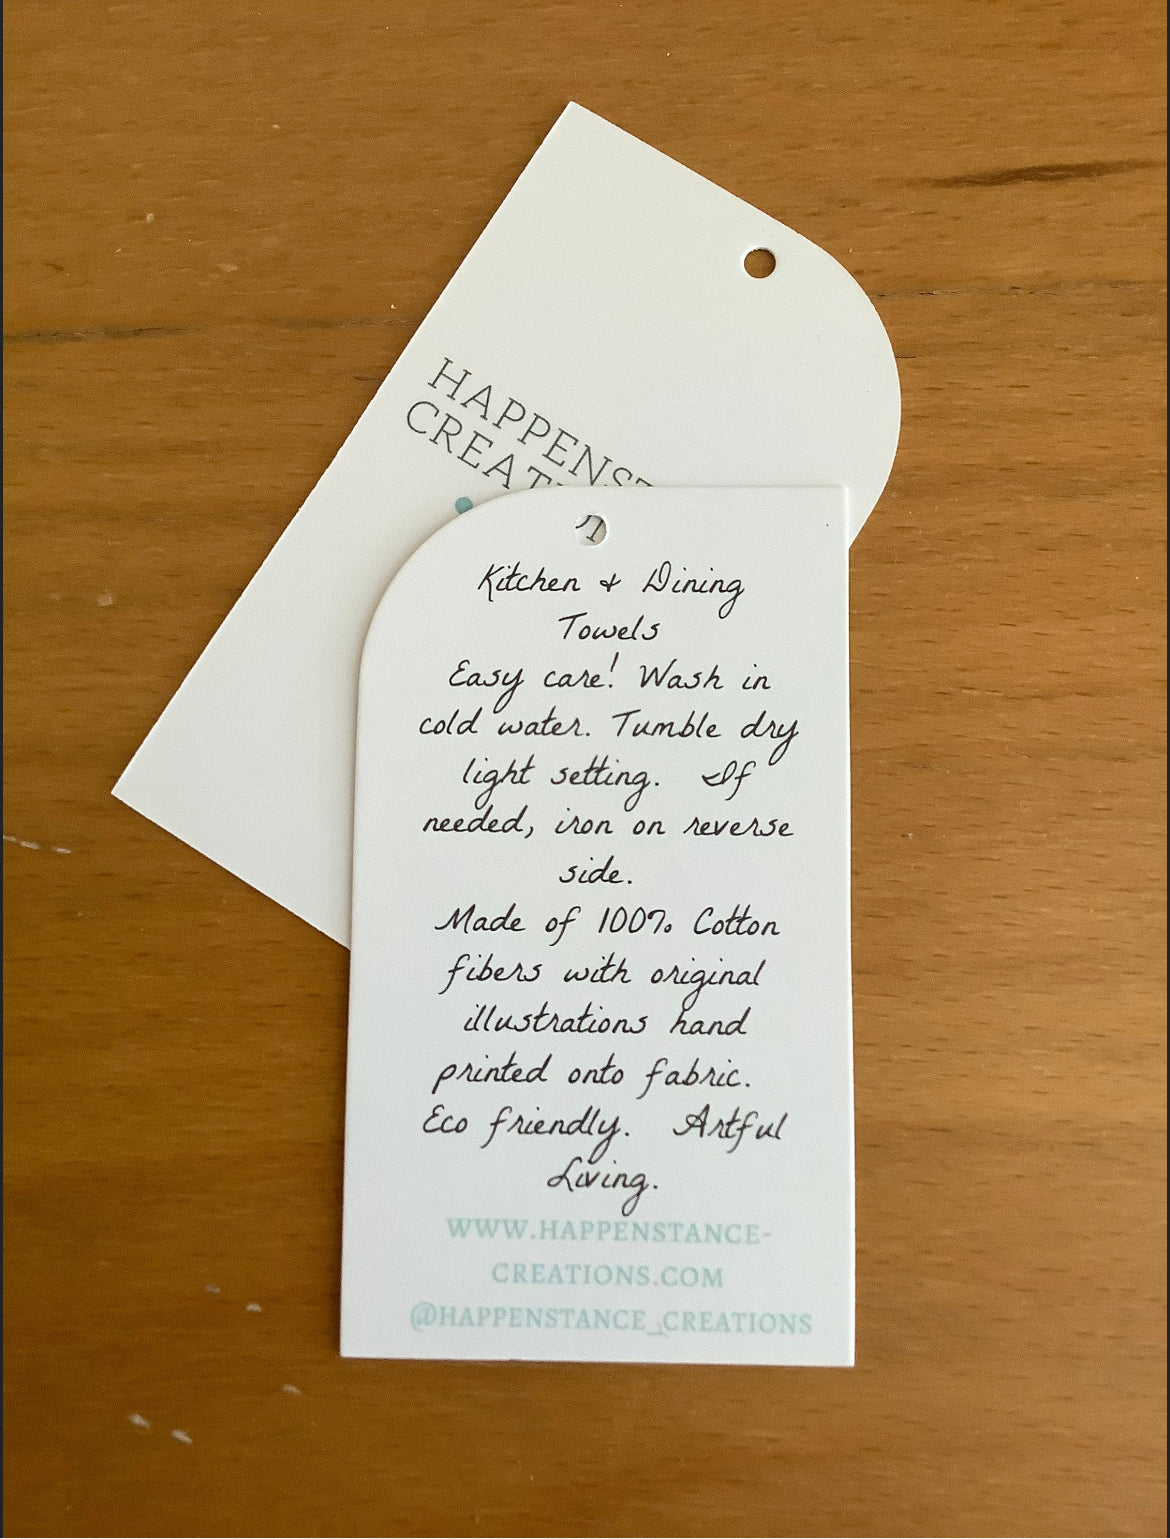 HAPPENST
CREAT
Kitchen & Dining
Towels
Easy care! Wash in
cold water. Tumble dry
light setting. If
needed, iron on reverse
side.
Made of 100% Cotton
fibers with original
illustrations hand
printed onto fabric.
Eco friendly. Artful
Living.
WWW.HAPPENSTANCE-
CREATIONS.COM
@HAPPENSTANCE_CREATIONS